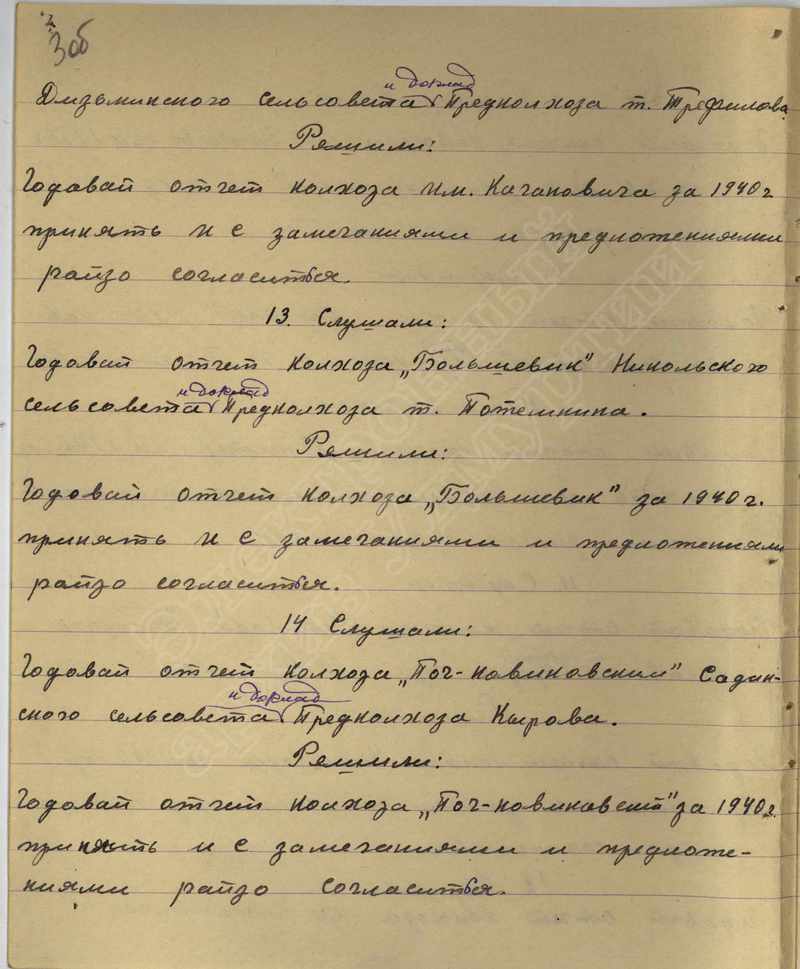 3об
и доклад
Дизьминского сельсовета Предколхоза т. Трефилова.
Решили:
Годовай отчет колхоза им. Кагановича за 1940 г
принять и с замечаниями и предложениями
райзо согласиться.
13. Слушали:
Годовай отчет колхоза „Большевик" Никольского
и доклад
сельсовета Предколхоза т. Потемкина.
Решили:
Годовай отчет колхоза „Большевик" за 1940 г.
принять и с замечаниями и предложениями
райзо согласиться.
14 Слушали:
Годовай отчет колхоза „Поч-новиковский" Садин-
и доклад
ского сельсовета Предколхоза Кырова.
Решили:
Годовай отчет колхоза „Поч-новиковский" за 1940 г.
принять и с замечаниями и предложе-
ниями райзо согласиться.